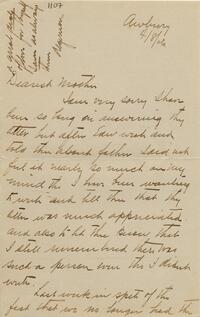 1107
a great deal
Awbury
4/9/16
Dearest Mother
I am very sorry I have
been so long in answering thy
letter but after law work and
told thee about father I did not
feel it nearly so much on my
mind tho I have been wanting
to write and tell thee that thy
letter was much appreciated
and also to let thee know that
I still remembered there was
such a person even tho I didn't
write.
Last week in spite of the
fact that we no longer had the